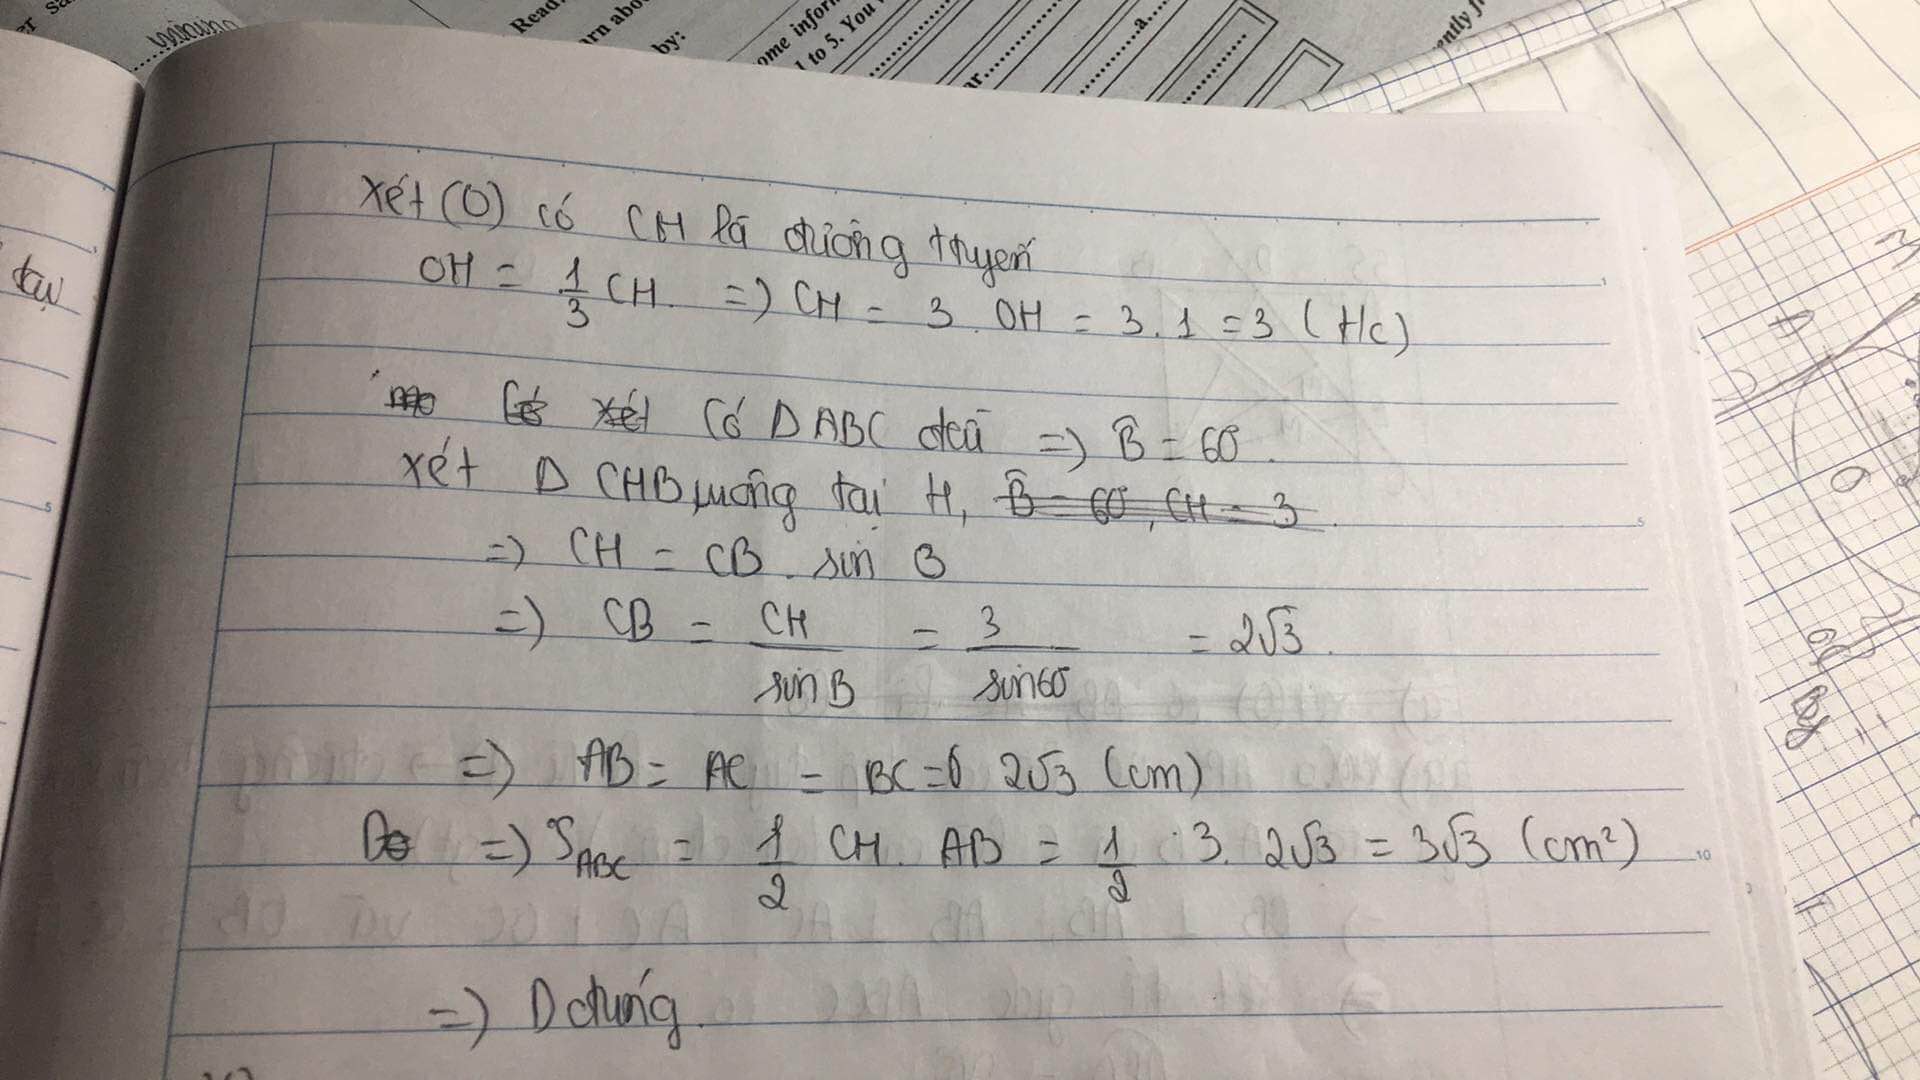 er sa
mining
Read
arn abou
by:
ome inform
1 to 5. You
a
ar
ently f
tại
Xét (O) có CH là đường tuyến
OH = 1/3 CH. => CH = 3. OH = 3.1 = 3 (t/c)
Có Δ ABC đều => B̂ = 60°.
xét Δ CHB vuông tại H, B̂ = 60°, CH = 3
=> CH = CB . sin B
=> CB = CH/sin B = 3/sin60° = 2√3.
=> AB = AC = BC = 2√3 (cm)
=> S_ABC = 1/2 CH. AB = 1/2 . 3. 2√3 = 3√3 (cm²)
=> D đúng.